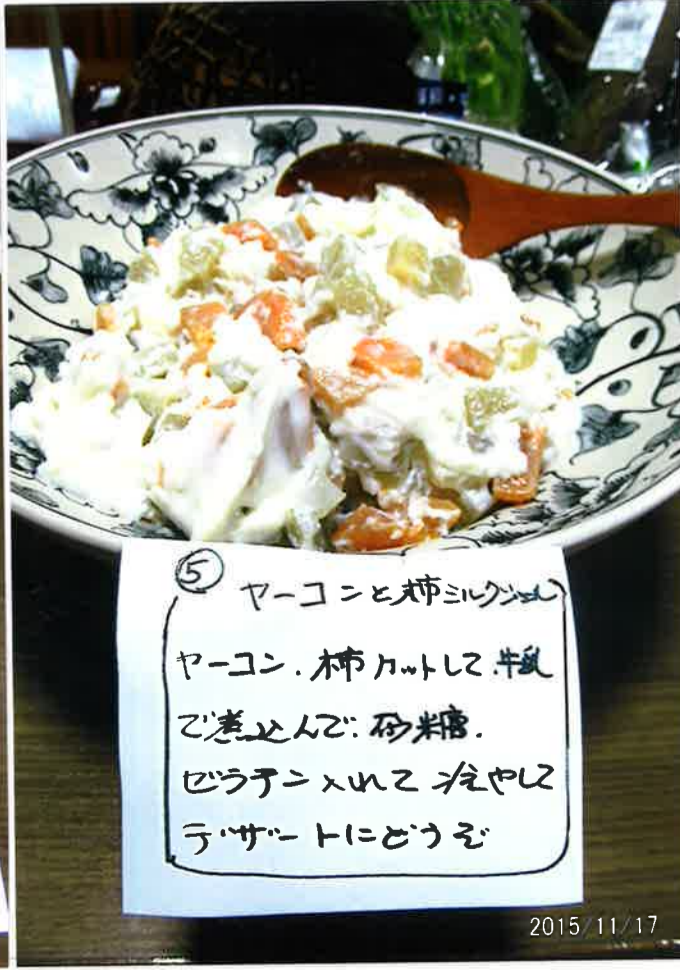 ⑤ ヤーコンと柿ミルクジュレ
ヤーコン.柿カットして.牛乳
で煮込んで.砂糖.
ゼラチン入れて冷やして
デザートにどうぞ
2015/11/17